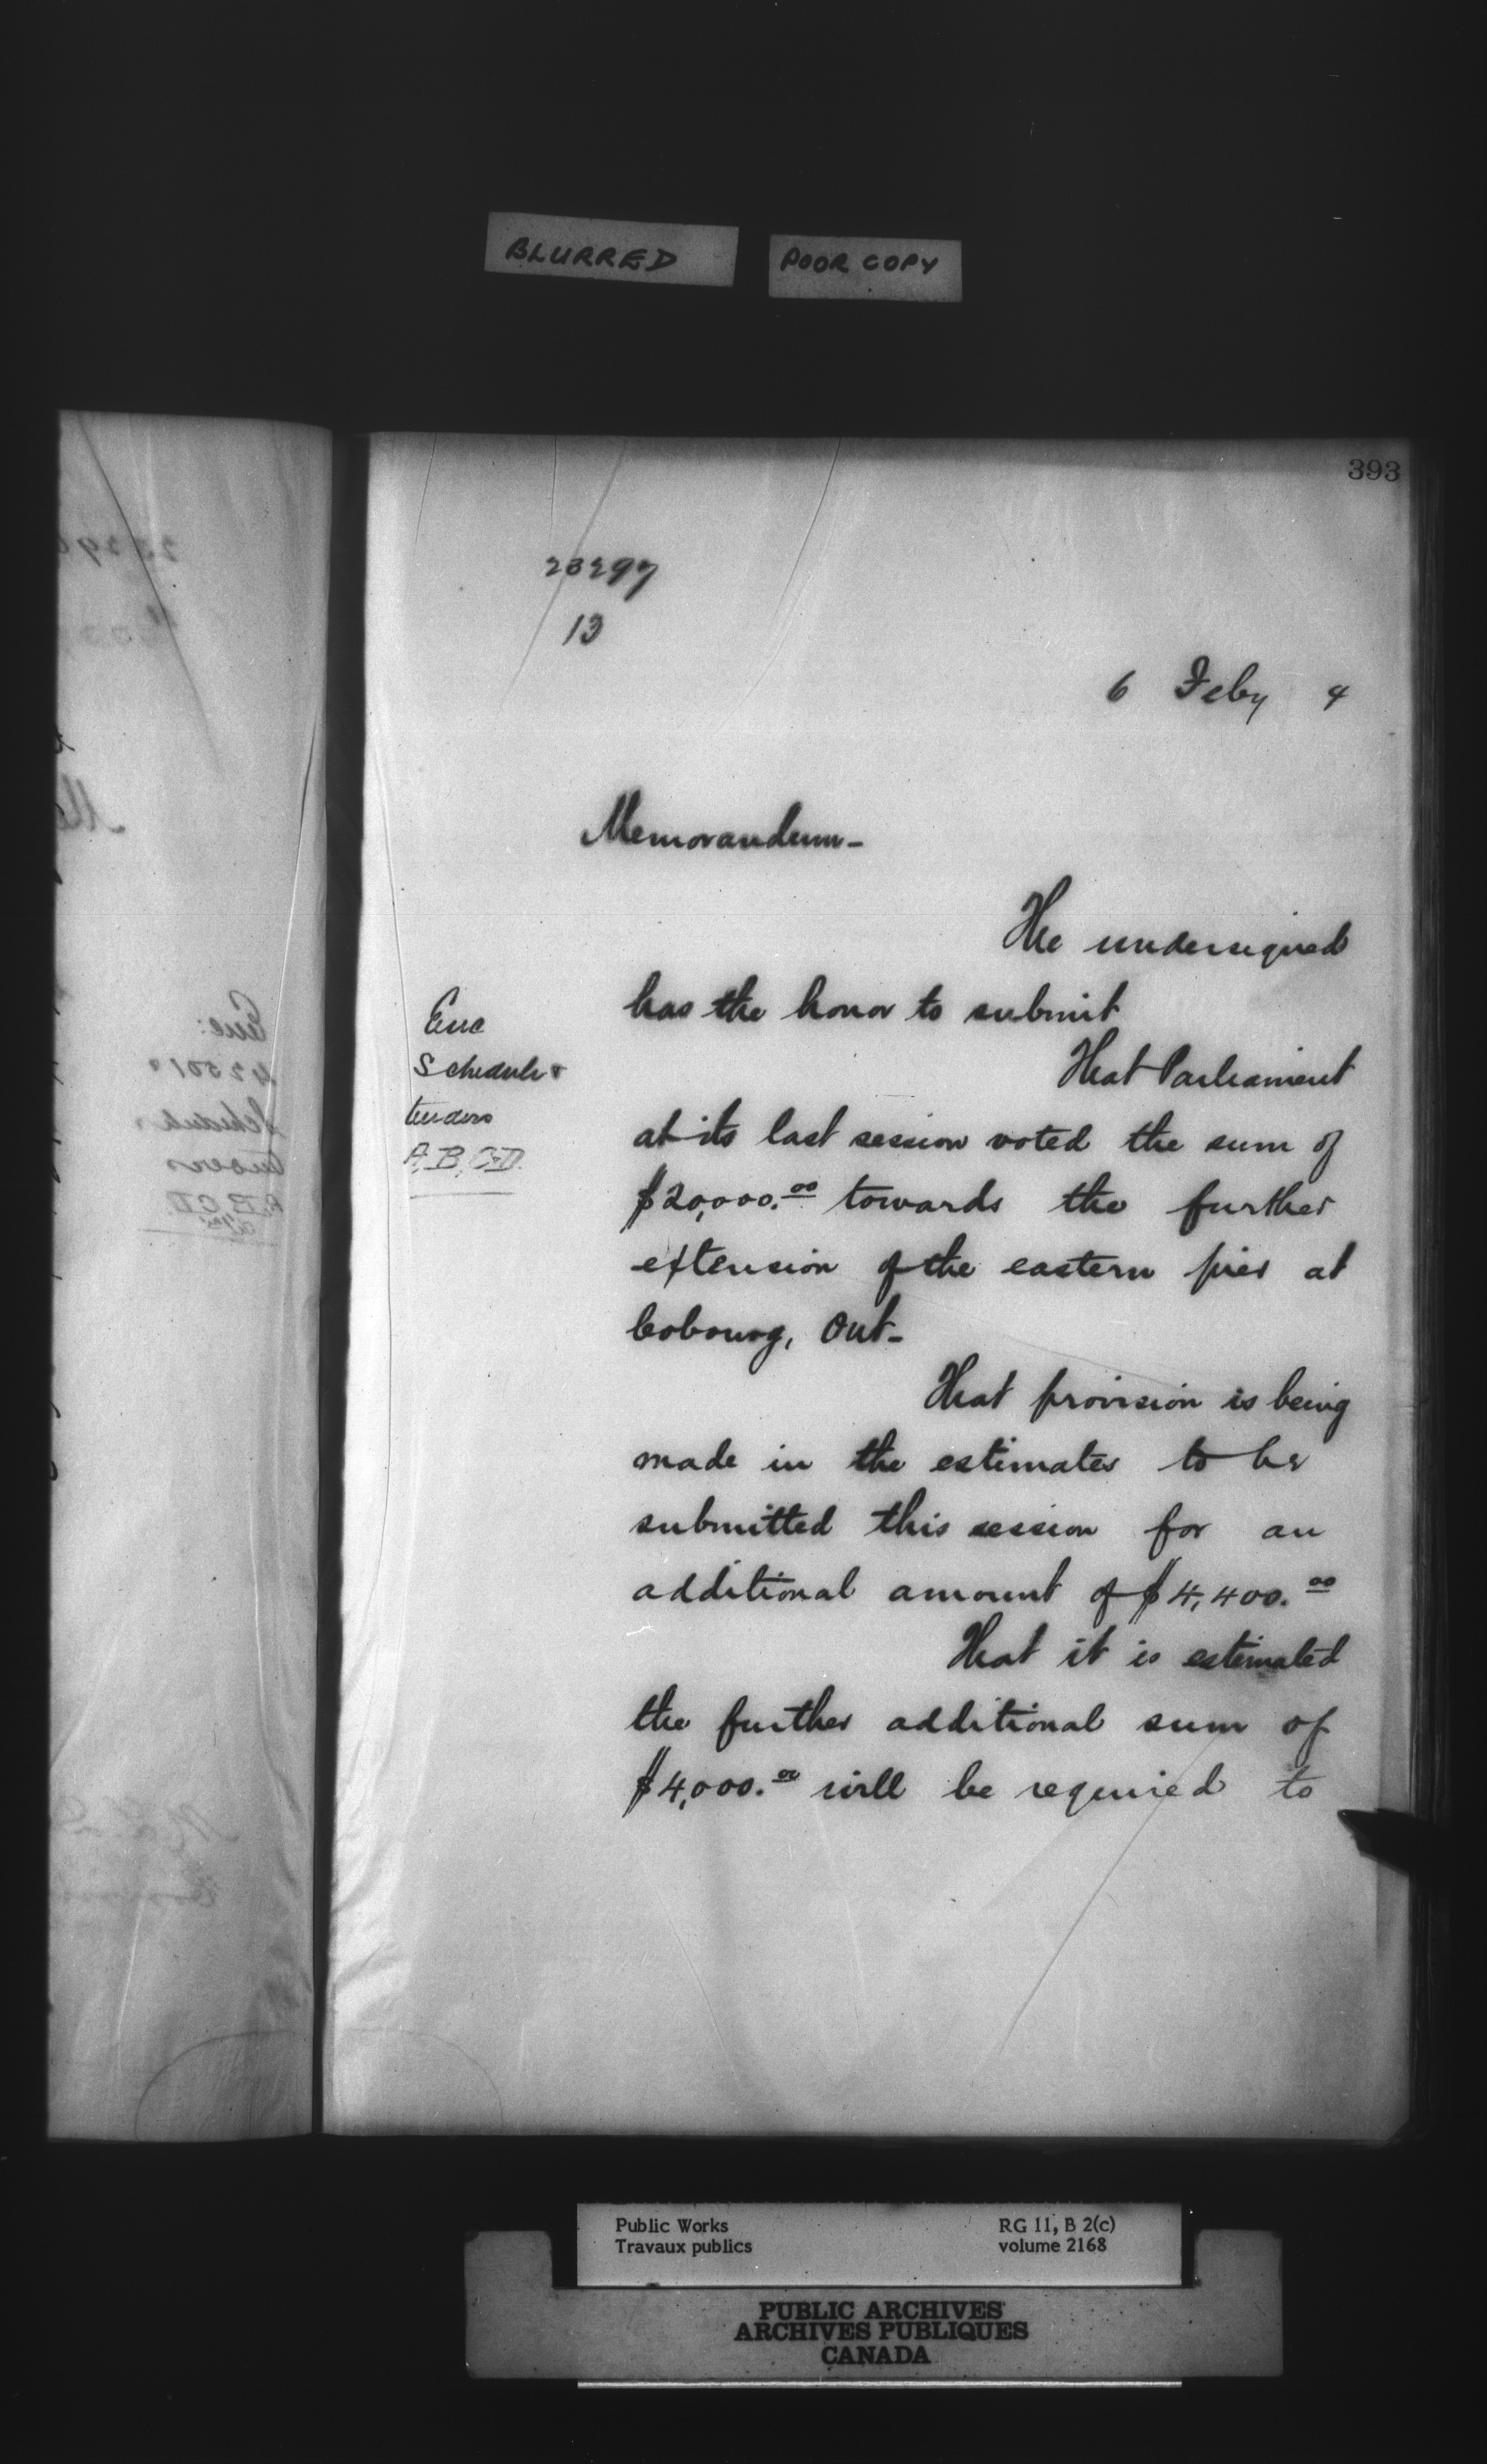 BLURRED
POOR COPY
393
23297
13
6 Feby 4
Memorandum-
The undersigned
has the honor to submit
That Parliament
at its last session voted the sum of
$20,000.00 towards the further
extension of the eastern pier at
Cobourg, Ont-
That provision is being
made in the estimates to be
submitted this session for an
additional amount of $4,400.00
That it is estimated
the further additional sum of
$4,000.00 will be required to
Enc
Schedule &
tenders
A, B, C & D.
Public Works
Travaux publics
RG 11, B 2(c)
volume 2168
PUBLIC ARCHIVES
ARCHIVES PUBLIQUES
CANADA